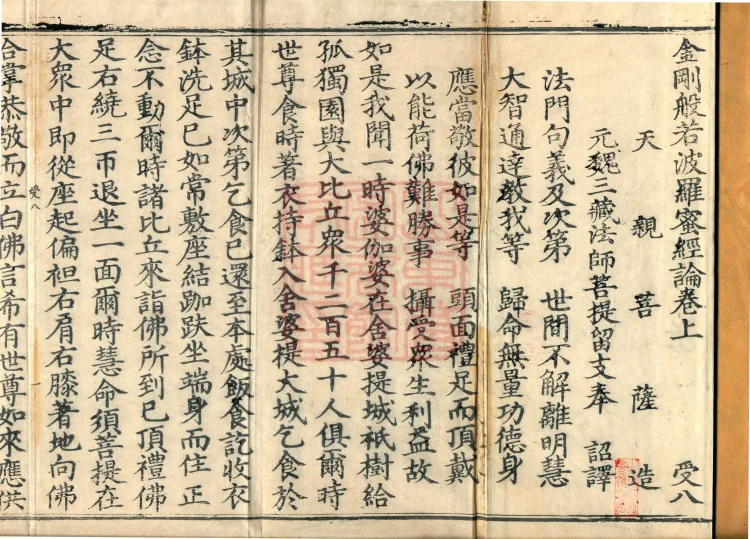 金剛般若波羅蜜經論卷上 受八
天親菩薩造
元魏三藏法師菩提留支奉 詔譯
法門句義及次第 世間不解離明慧
大智通達教我等 歸命無量功德身
應當敬彼如是等 頭面禮足而頂戴
以能荷佛難勝事 攝受衆生利益故
如是我聞一時婆伽婆在舍婆提城祇樹給
孤獨園與大比丘衆千二百五十人俱爾時
世尊食時著衣持鉢入舍婆提大城乞食於
其城中次第乞食已還至本處飯食訖收衣
鉢洗足已如常敷座結跏趺坐端身而住正
念不動爾時諸比丘來詣佛所到已頂禮佛
足右繞三帀退坐一面爾時慧命須菩提在
大衆中即從座起偏袒右肩右膝著地向佛
受八
一
合掌恭敬而立白佛言希有世尊如來應供